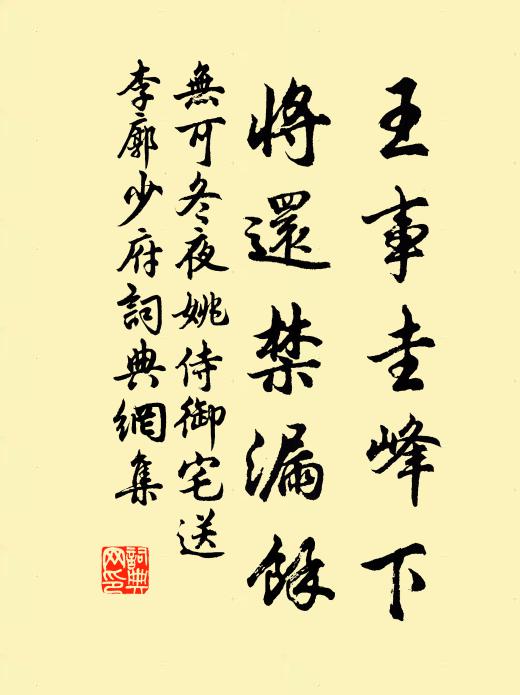 王事圭峰下
将還禁漏餘
無可冬夜姚侍御宅送
李廓少府詞典網集
詞典網印